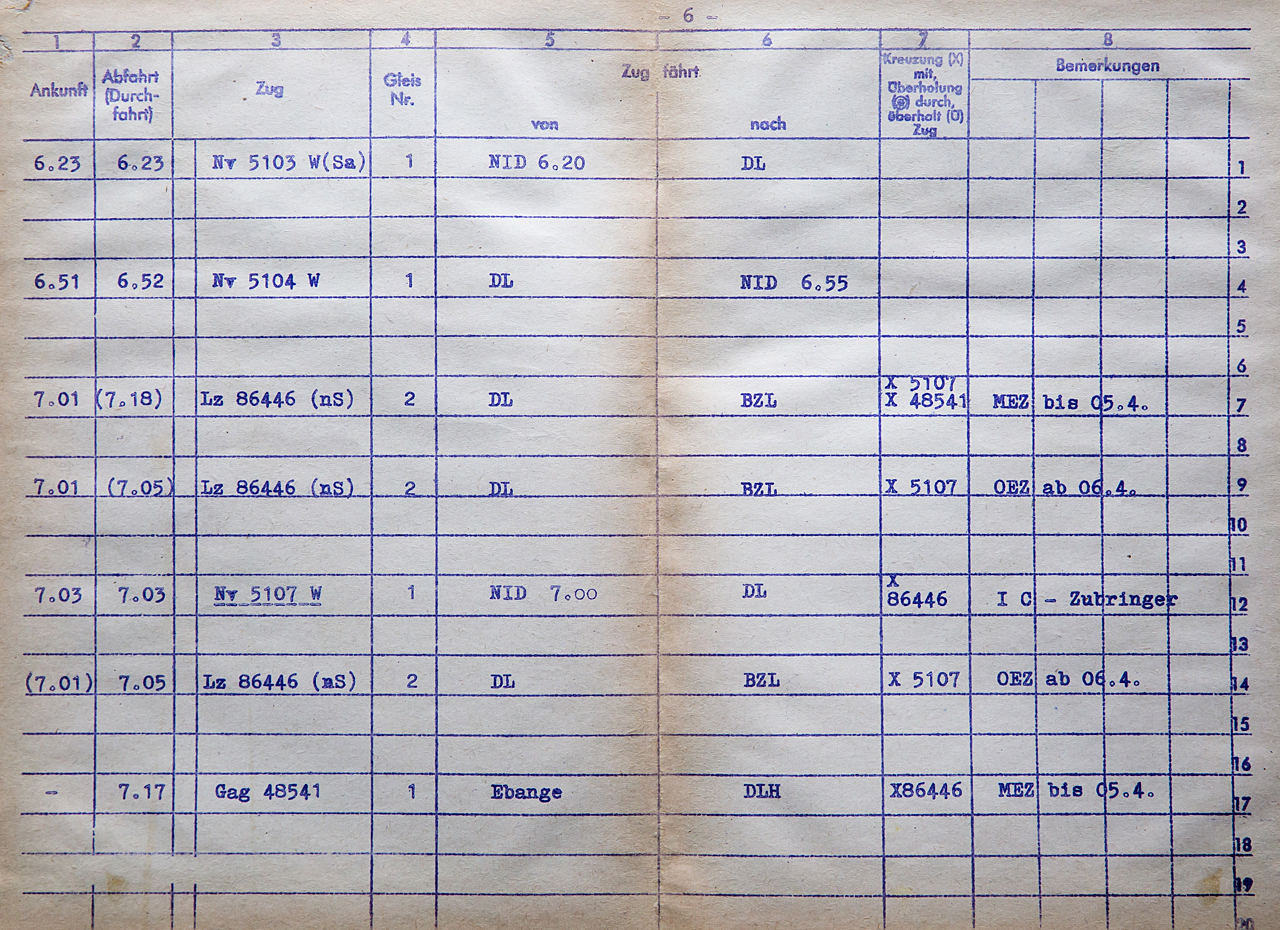 - 6 -
1 2 3 4 5 6 7 8
Ankunft Abfahrt (Durch-fahrt) Zug Gleis Nr. Zug fährt von nach Kreuzung (X) mit, Überholung durch, überholt (Ü) Zug Bemerkungen
6.23 6.23 Nv 5103 W(Sa) 1 NID 6.20 DL 1
2
3
6.51 6.52 Nv 5104 W 1 DL NID 6.55 4
5
6
7.01 (7.18) Lz 86446 (nS) 2 DL BZL X 5107 X 48541 MEZ bis 05.4. 7
8
7.01 (7.05) Lz 86446 (nS) 2 DL BZL X 5107 OEZ ab 06.4. 9
10
11
7.03 7.03 Nv 5107 W 1 NID 7.00 DL X 86446 I C - Zubringer 12
13
(7.01) 7.05 Lz 86446 (nS) 2 DL BZL X 5107 OEZ ab 06.4. 14
15
16
- 7.17 Gag 48541 1 Ebange DLH X86446 MEZ bis 05.4. 17
18
19
20